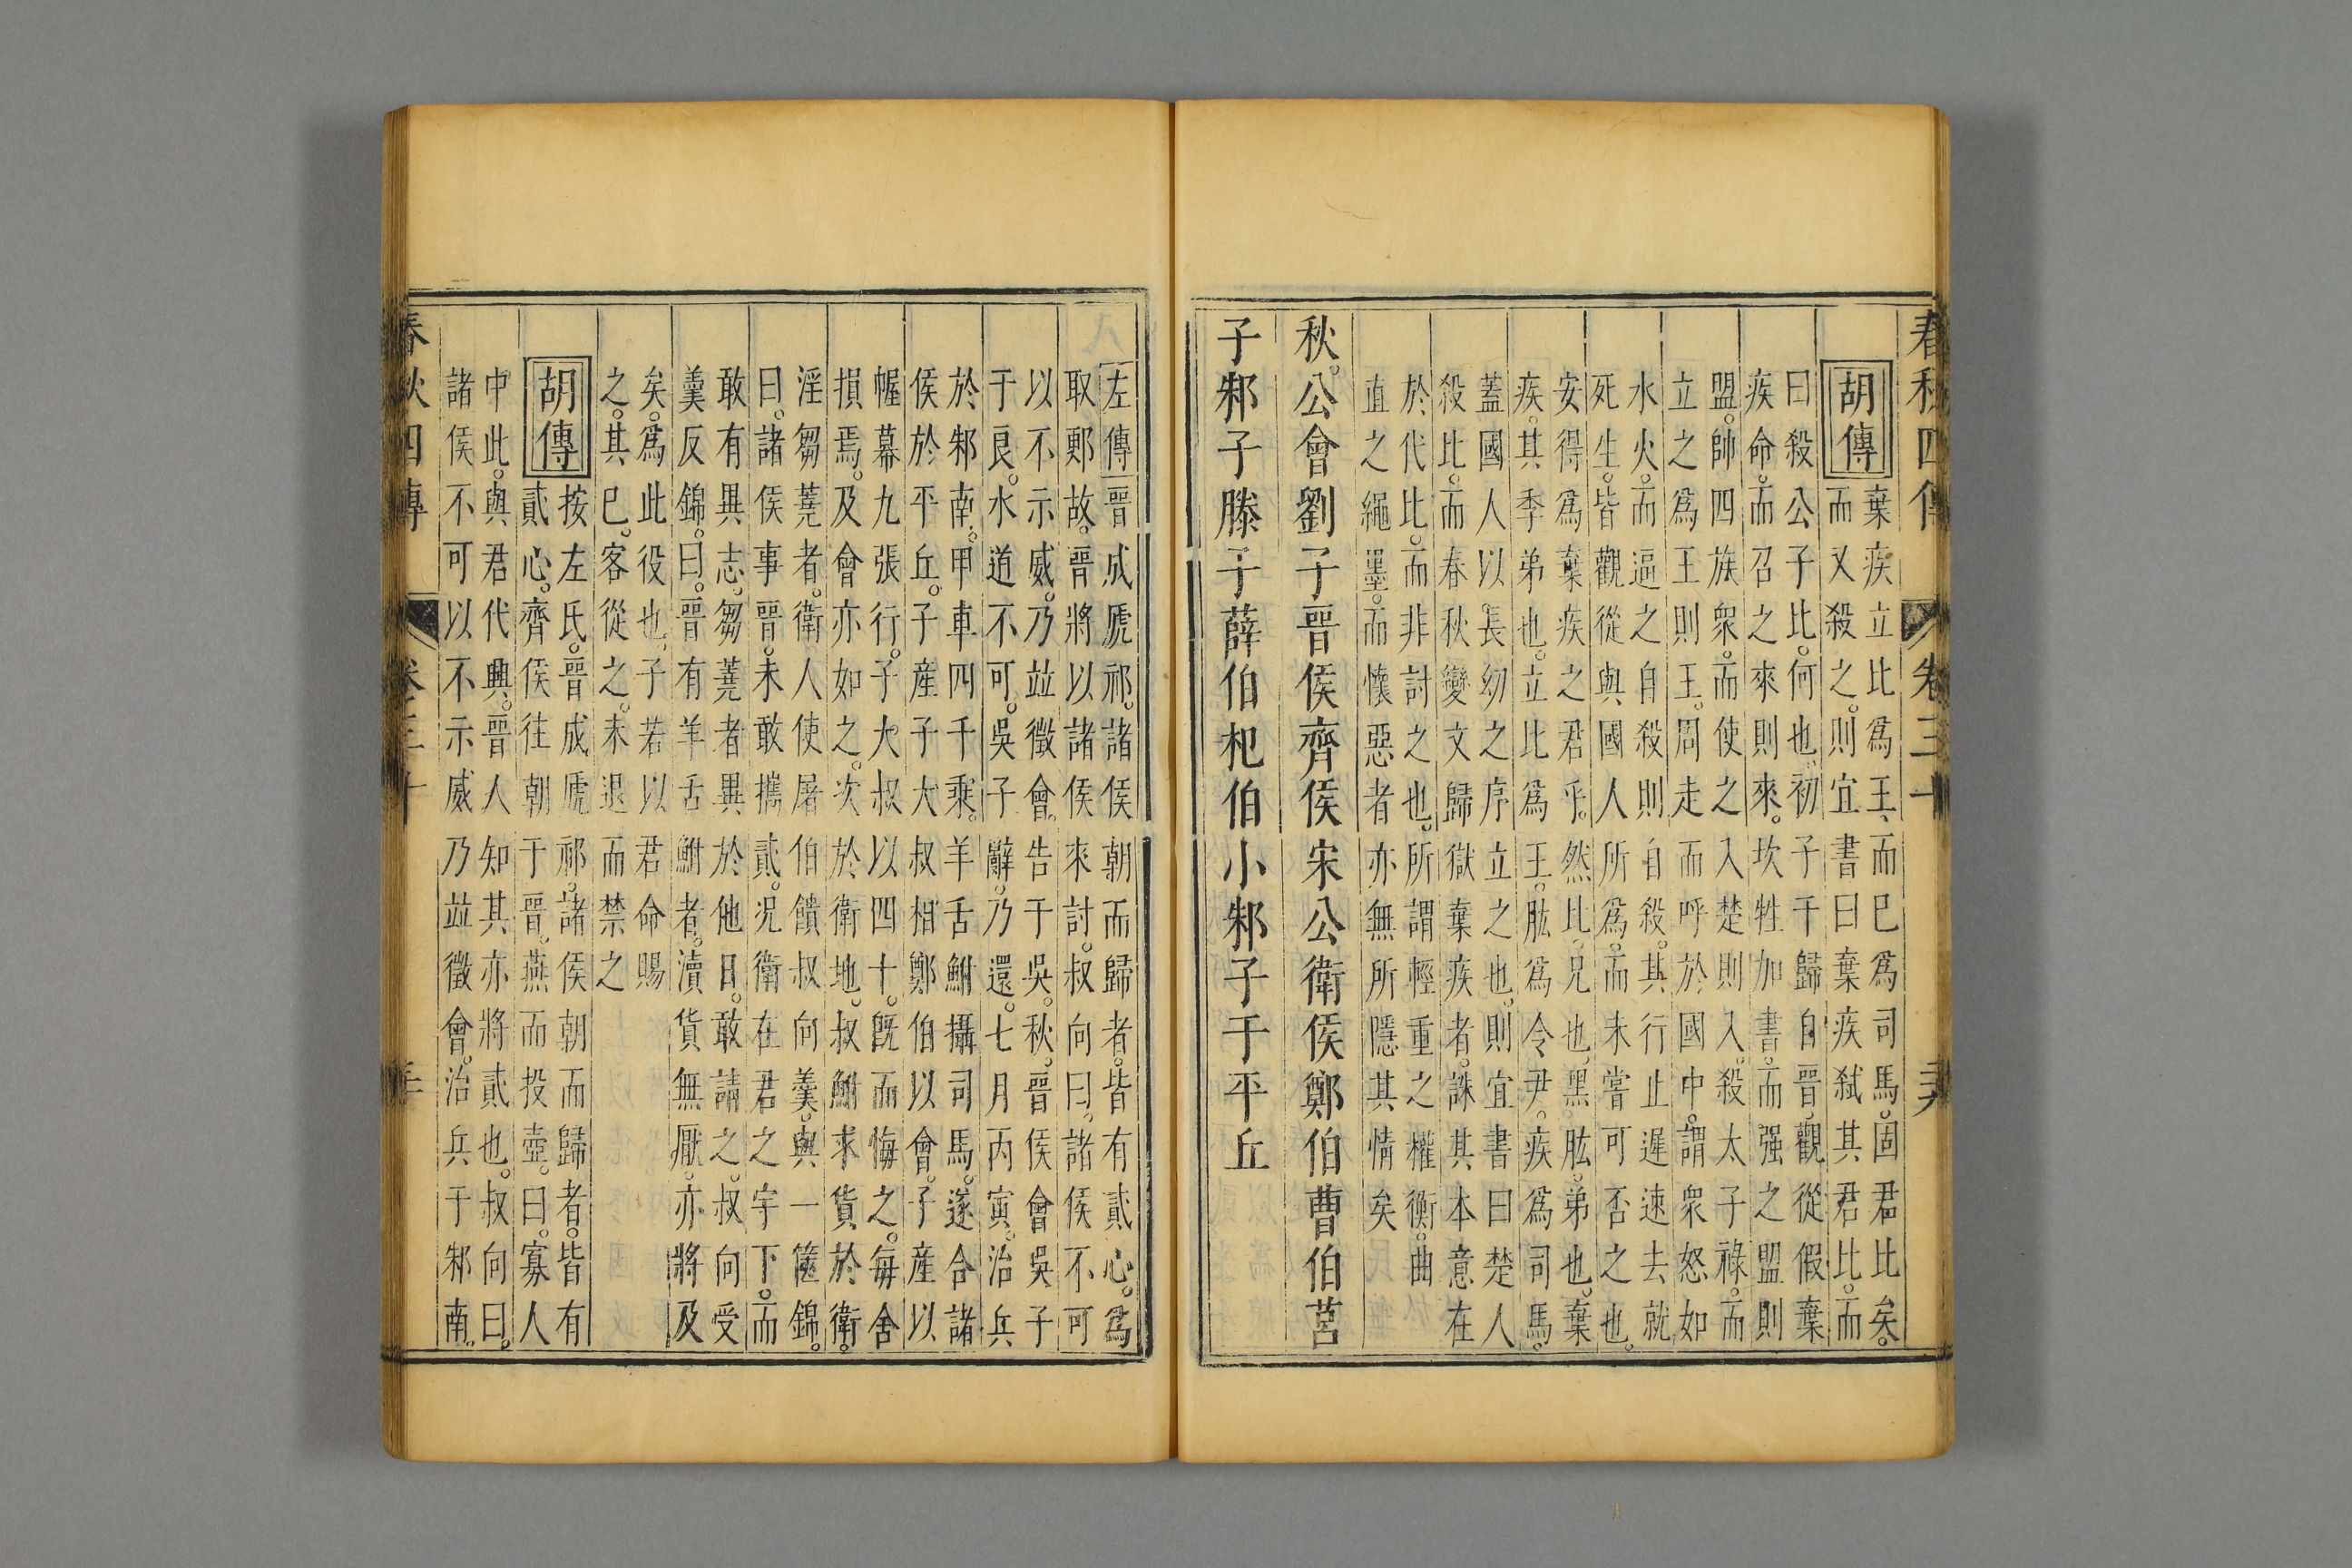 春秋四傳 卷三十 二十九
胡傳
棄疾立比爲王、而巳爲司馬。固君比矣。
而又殺之。則宜書曰棄疾弑其君比。而
曰殺公子比。何也、初子干歸自晉。觀從假棄
疾命。而召之來則來。坎牲加書。而强之盟則
盟。帥四族衆。而使之入楚則入。殺太子祿。而
立之爲王則王。周走而呼於國中。謂衆怒如
水火。而逼之自殺則自殺。其行止遲速去就
死生。皆觀從與國人所爲。而未嘗可否之也。
安得爲棄疾之君乎。然比、兄也。黑肱。弟也。棄
疾。其季弟也。立比爲王。肱爲令尹。疾爲司馬。
蓋國人以長幼之序立之也。則宜書曰楚人
殺比。而春秋變文歸獄棄疾者。誅其本意在
於代比。而非討之也。所謂輕重之權衡。曲
直之繩墨。而懷惡者亦無所隱其情矣
秋。公會劉子晉侯齊侯宋公衛侯鄭伯曹伯莒
子邾子滕子薛伯杞伯小邾子于平丘
左傳晉成虒祁。諸侯朝而歸者。皆有貳心。爲
取鄆故。晉將以諸侯來討。叔向曰。諸侯不可
以不示威。乃竝徵會。告于吳。秋。晉侯會吳子
于良。水道不可。吳子辭。乃還。七月丙寅。治兵
於邾南。甲車四千乘。羊舌鮒攝司馬。遂合諸
侯於平丘。子産子大叔相鄭伯以會。子産以
幄幕九張行。子大叔以四十。旣而悔之。每舍
損焉。及會亦如之。次於衛地。叔鮒求貨於衛。
淫芻蕘者。衛人使屠伯饋叔向羹。與一篋錦。
曰。諸侯事晉。未敢攜貳。况衛在君之宇下。而
敢有異志。芻蕘者異於他日。敢請之。叔向受
羹反錦。曰。晉有羊舌鮒者。瀆貨無厭。亦將及
矣。爲此役也。子若以君命賜
之。其巳。客從之。未退而禁之
胡傳
按左氏。晉成虒祁。諸侯朝而歸者。皆有
貳心。齊侯往朝于晉。燕而投壺。曰。寡人
中此。與君代興。晉人知其亦將貳也。叔向曰。
諸侯不可以不示威乃竝徵會。治兵于邾南。
春秋四傳 卷三十